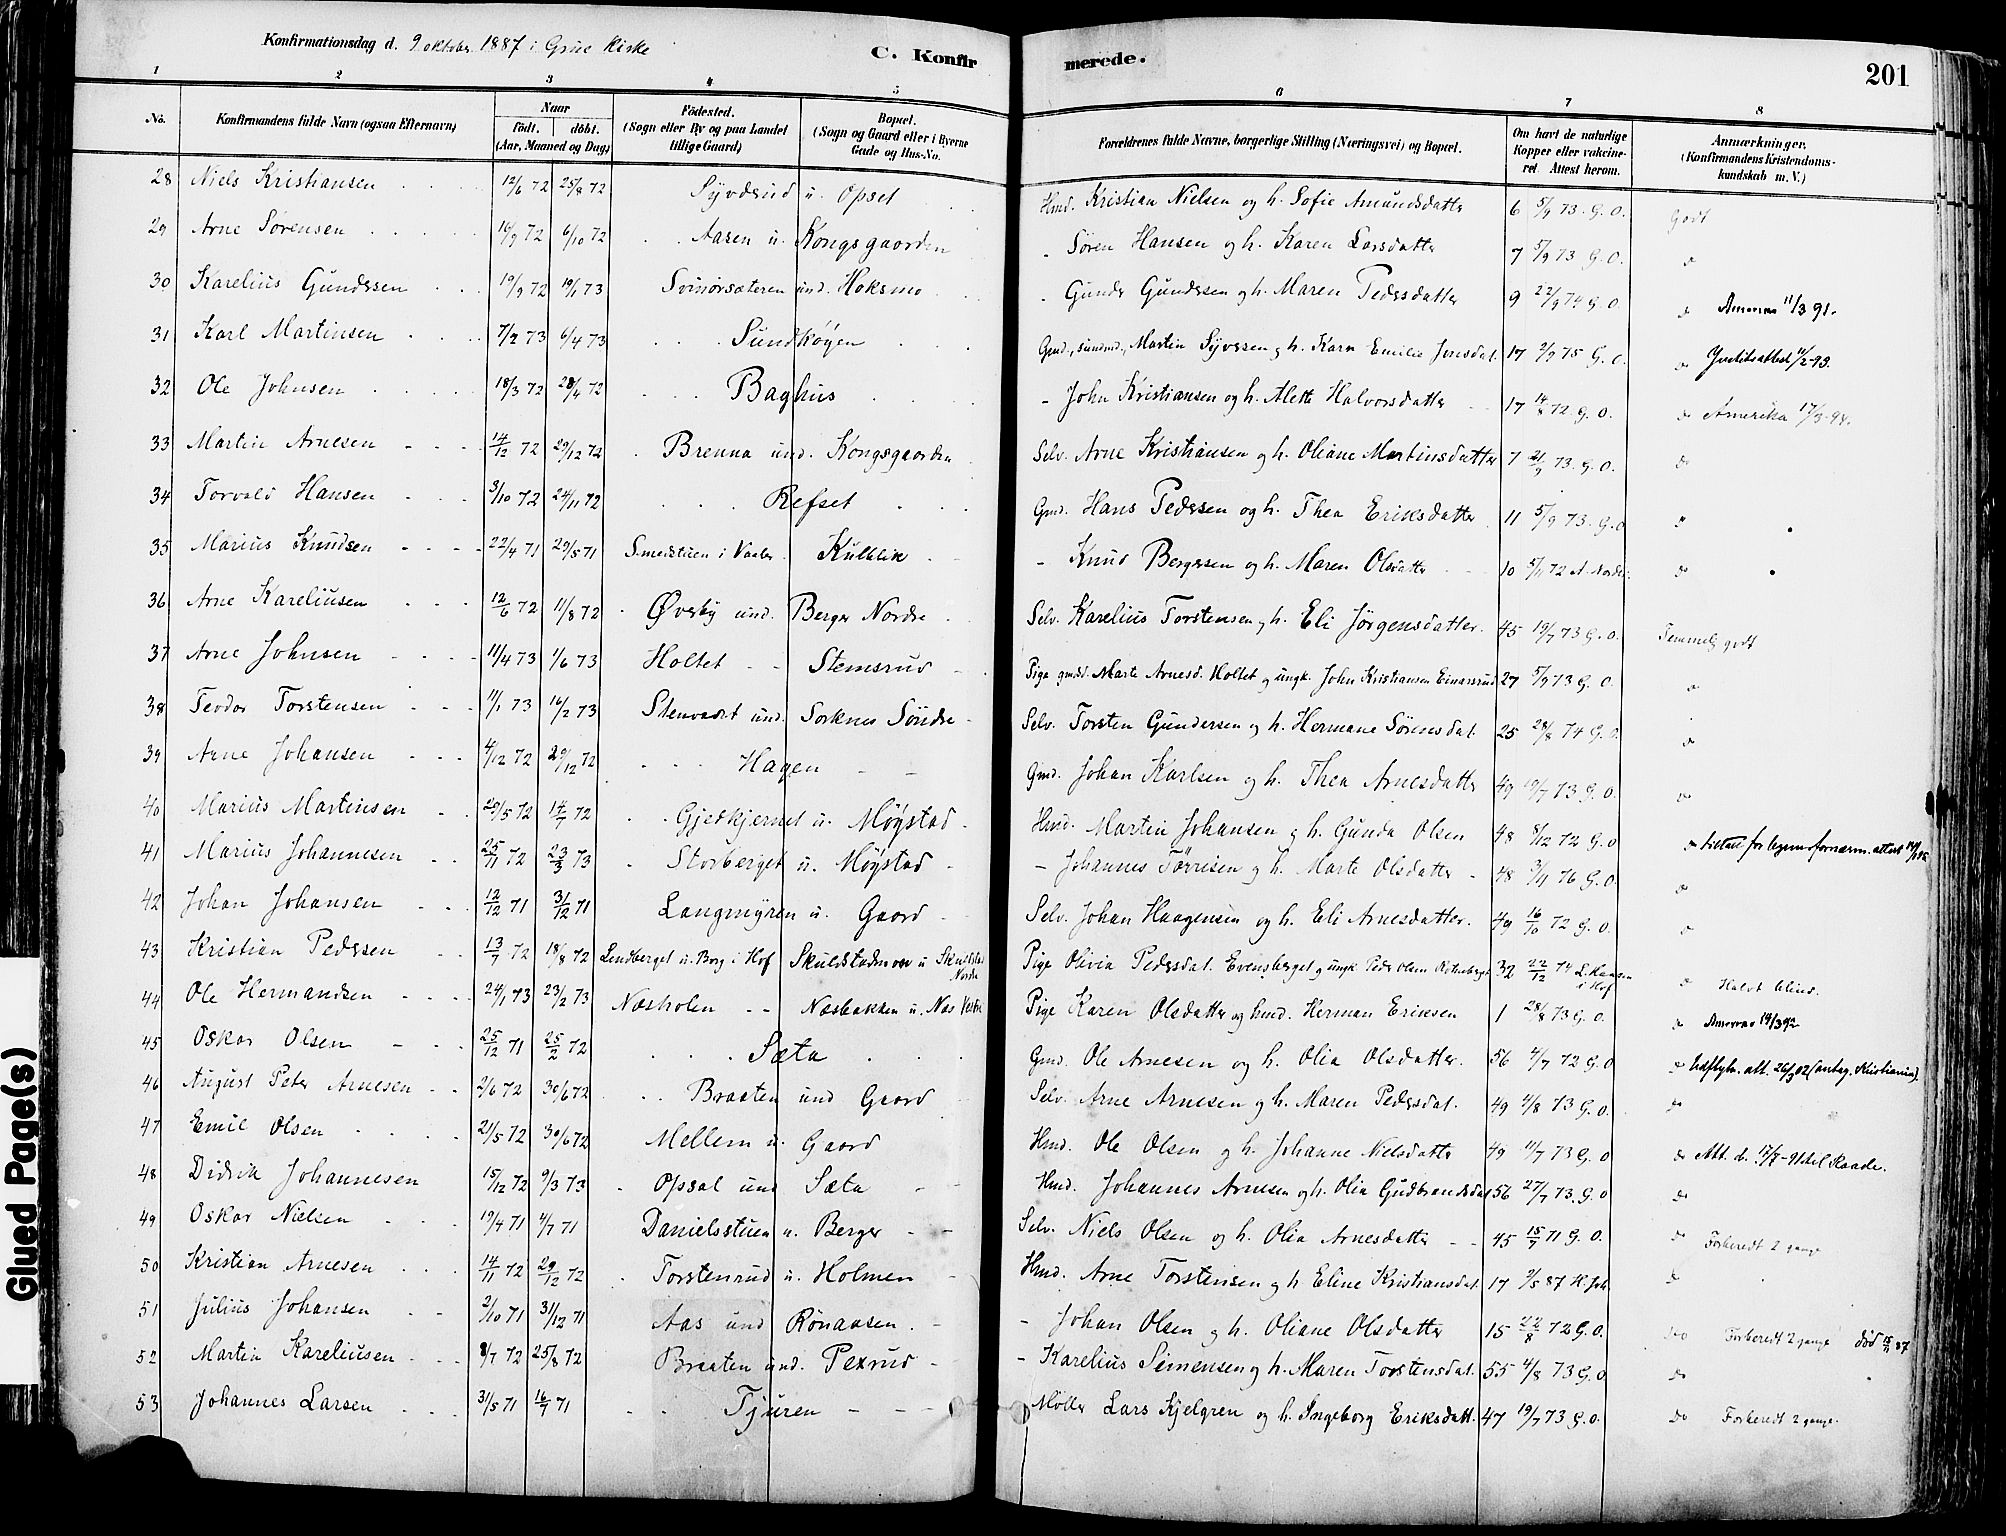 Konfirmationsdag d. 9 oktober 1887 i Grue Kirke
C. Konfirmerede.
201
1 2 3 4 5 6 7 8
No. Konfirmandens fulde Navn (ogsaa Efternavn) Naar født. døbt. (Aar, Maaned og Dag) Fødested. (Sogn eller By og paa Landet tillige Gaard) Bopæl. (Sogn og Gaard eller i Byerne Gade og Hus-No. Forældrenes fulde Navne, borgerlige Stilling (Næringsvei) og Bopæl. Om havt de naturlige Kopper eller vakcineret. Attest herom. Anmærkninger. (Konfirmandens Kristendomskundskab m. V.)
28 Niels Kristiansen 12/6 72 25/8 72 Syvdsrud u. Opset Hmd. Kristian Nielsen og h. Sofie Amundsdatter 6 5/9 73. G. O. Godt
29 Arne Sørensen 16/9 72 6/10 72 Aasen u. Kongsgaarden - Søren Hansen og h. Karen Larsdatter 7 5/9 73 G. O. do
30 Karelius Gundersen 19/9 72 19/1 73 Svinørsæteren und. Hoksmo - Gunder Gundersen og h. Maren Pedersdatter 9 22/9 74 G. O. do Amerika 11/3 91.
31 Karl Martinsen 7/2 73 6/4 73 Sundhøgen Gmd., sundmd., Martin Syversen og h. Karn Emilie Jonsdat. 17 2/9 75 G. O. do
32 Ole Johnsen 18/3 72 28/4 72 Baghus - John Kristiansen og h. Alette Halvorsdatter 17 14/8 72 G. O. do Amerika
33 Martin Arnesen 14/12 72 29/12 72 Brenna und. Kongsgaarden Selv. Arne Kristiansen og h. Oliane Martinsdatter 7 21/9 73. G. O. do
34 Torvald Hansen 3/10 72 24/11 72 Refset Gmd. Hans Pedersen og h. Thea Eriksdatter 11 5/9 73. G. O do
35 Marius Knudsen 22/4 71 29/5 71 Smedstuen i Vaaler Kulblik - Knud Bergersen og h. Maren Olsdatter 10 5/11 72 do
36 Arne Kareliusen 12/6 72 11/8 72 Øvsby und. Berger Nordre Selv. Karelius Torstensen og h. Eli Jørgensdatter. 45 19/7 73 G. O. Temmelig godt
37 Arne Johnsen 11/4 73 1/6 73 Holtet Stemsrud Pige gmdd. Marte Arnesd. Holtet og ungk. John Kristiansen Einarsrud 27 5/9 73 G. O. do
38 Teodor Torstensen 11/1 73 16/2 73 Stenvadet und. Sorknes Søndre Selv. Torsten Gundersen og h. Hermane Sørensdat. 25 28/8 74 G. O. do
39 Arne Johansen 4/12 72 29/12 72 Hagen Gmd. Johan Karlsen og h. Thea Arnesdatter 49 19/7 73 G. O. do
40 Marius Martinsen 29/5 72 14/7 72 Gjetkjernet u. Møystad Hmd. Martin Johansen og h. Gunda Olsen 48 8/12 72 G. O
41 Marius Johannesen 25/11 72 23/3 73 Storberget u. Møystad - Johannes Tørrisen og h. Marte Olsdatter 48 3/11 76 G. O. do
42 Johan Johansen 12/12 71 31/12 71 Langmyren u. Gaard Selv. Johan Haagensen og h. Eli Arnesdatter. 49 16/10 72 G. O. do
43 Kristian Pedersen 13/7 72 18/8 72 Lindberget u. Borg i Hof Skuldstadmoen u Skuldstad Nordre Pige Olivia Pedersdat. Evensberget og ungk Peder Olsen 32 22/12 74 L. Hansen i Hof do Halvt blind.
44 Ole Hermandsen 24/1 73 23/2 73 Næsholen Næsbakken u. Næs Vestre Pige Karen Olsdatter og hmd. Herman Eriksen 1 28/8 73 G. O. do Amerika 14/3 92
45 Oskar Olsen 25/12 71 25/2 72 Sæta Gmd. Ole Arnesen og h. Olia Olsdatter. 56 4/7 72 G. O do Udflytn. att. 26/3 02 (antag. Kristiania).
46 August Peter Arnesen 2/6 72 30/6 72 Braaten und Gaard Selv. Arne Arnesen og h. Maren Pedersdat. 49 4/8 73 G. O. do
47 Emil Olsen 21/5 72 30/6 72 Mellem u. Gaard Hmd. Ole Olsen og h. Johanne Nielsdatter 49 11/7 73 G. O do Att. d. 17/7-91 til Raade.
48 Didrik Johannesen 15/12 72 9/3 73 Opsal und Sæta Hmd. Johannes Arnesen og h. Olia Gudbrandsdat 56 27/7 73. G. O do
49 Oskar Nielsen 19/4 71 4/7 71 Danielsstuen u. Berger Selv. Niels Olsen og h. Olia Arnesdatter 45 15/7 71 G. O. do Forberedt 2 gange
50 Kristian Arnesen 14/11 72 29/12 72 Torstenrud u. Holmen Hmd. Arne Torstensen og h Eline Kristiansdat. 17 2/5 87 do
51 Julius Johansen 2/10 71 31/12 71 Aas und Rønaasen - Johan Olsen og h. Oliane Olsdatter 15 22/8 72 G. O. do Forberedt 2 gange død 15/11 87
52 Martin Kareliusen 8/7 72 25/8 72 Braaten und. Pexrud - Karelius Simensen og h. Maren Torstensdat. 55 4/8 73 G. O do
53 Johannes Larsen 31/5 71 16/7 71 Tjuren Møller Lars Kjelgren og h. Ingeborg Eriksdatt. 47 19/7 73 G. O. do Forberedt 2 gange.
Glued Page(s)